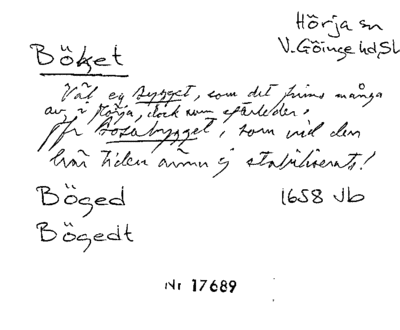 Hörja sn
V. Göinge hd, Sk
Böket
Väl eg bygget, som det finns många
av i Hörja, dock som efterleder,
Jfr Bosabygget, som vid den
här tiden ännu ej stabiliserats!
Böged 1658 Jb
Bögedt
Nr 17689